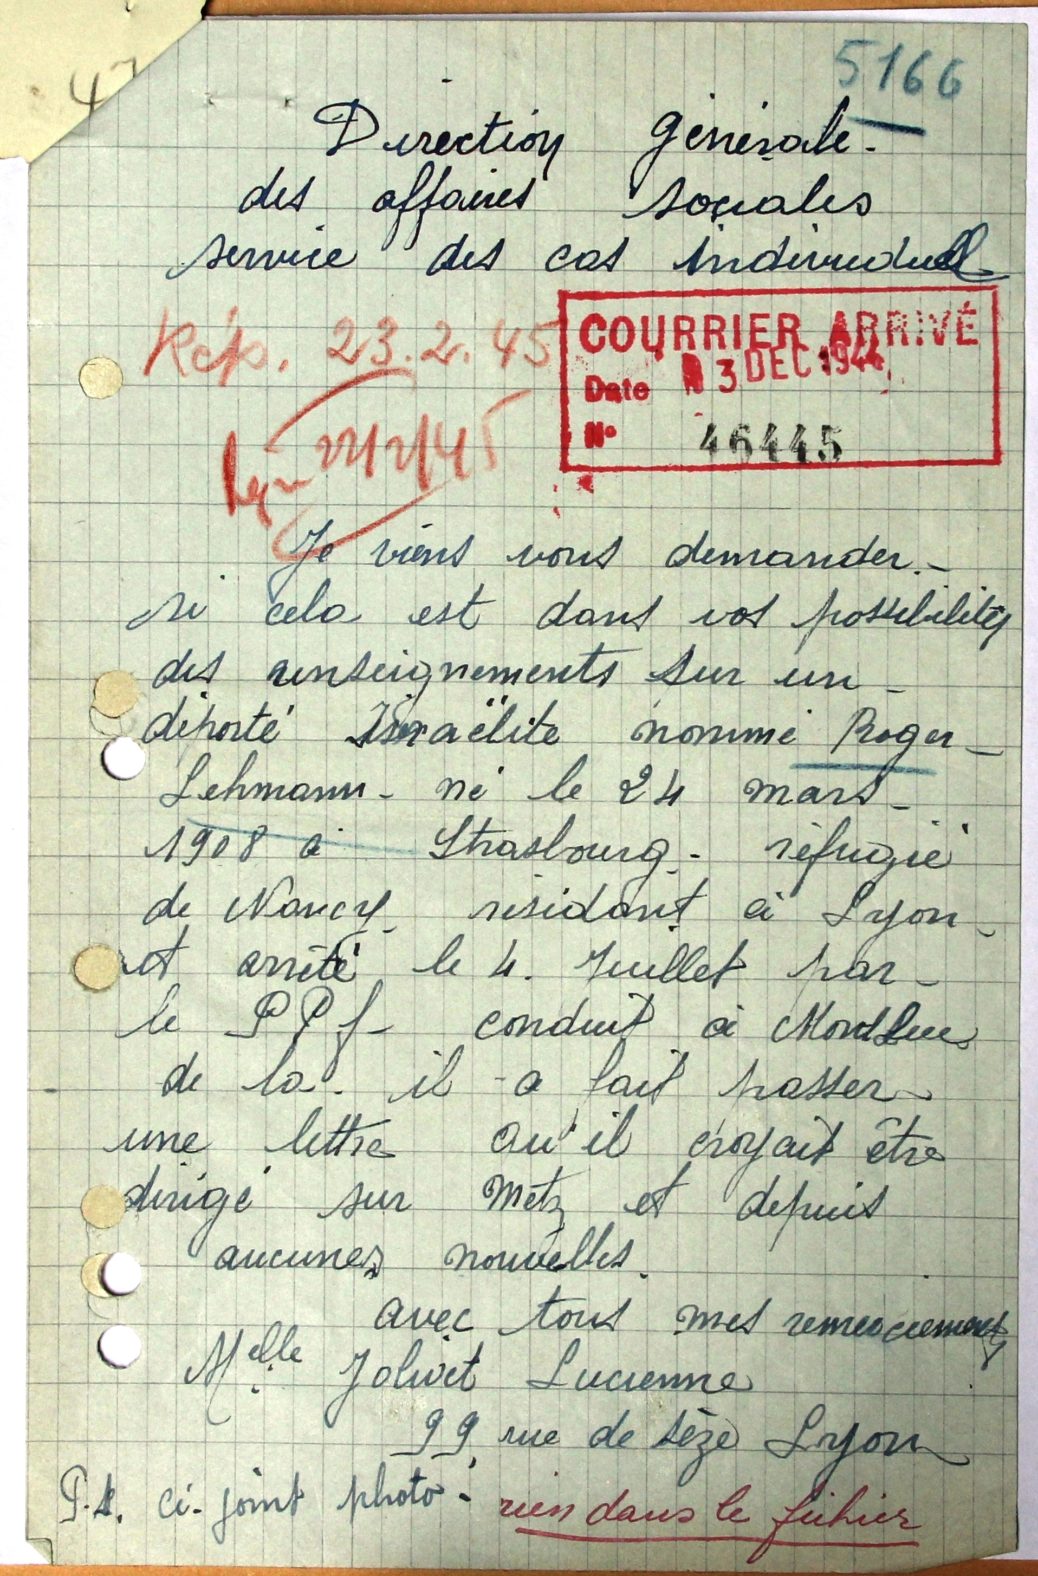 47
5166
Direction Générale -
des affaires sociales
service des cas individuel
Rép. 23.2.45
COURRIER ARRIVÉ
Date 3 DEC 1944
N° 46445
22/2/45
Je viens vous demander. -
si cela est dans vos possibilités
des renseignements sur un -
déporté Israëlite nommé Roger -
Lehmann - né le 24 mars -
1908 à Strasbourg - réfugié
de Nancy résidant à Lyon -
et arrêté le 4. Juillet par -
le PPf - conduit à MontLuc
de la. il - a fait passer -
une lettre qu'il croyait être
dirigé sur Metz et depuis
aucunes nouvelles.
avec tous mes remerciements
Melle Jolivet Lucienne
99 rue de Sèze Lyon
P.S. ci-joint photo - rien dans le fichier